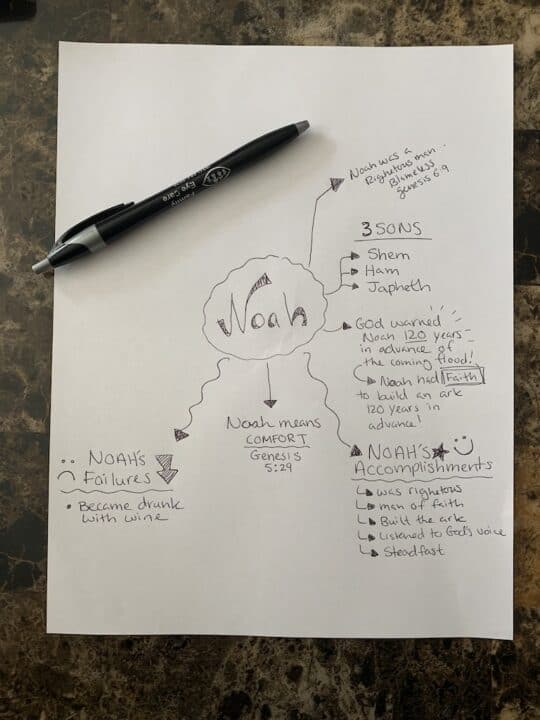 Family
Eye Care
Noah was a
Righetous man..
Blameless
Genesis 6:9
3 SONS
Shem
Ham
Japheth
Noah
God warned
Noah 120 years
in advance of
the coming flood!
Noah had Faith
to build an ark
120 years in
advance!
Noah means
COMFORT
Genesis
5:29
NOAH'S
Failures
• Became drunk
with wine
NOAH'S
Accomplishments
was righetous
man of faith
Built the ark
Listened to God's voice
Steadfast